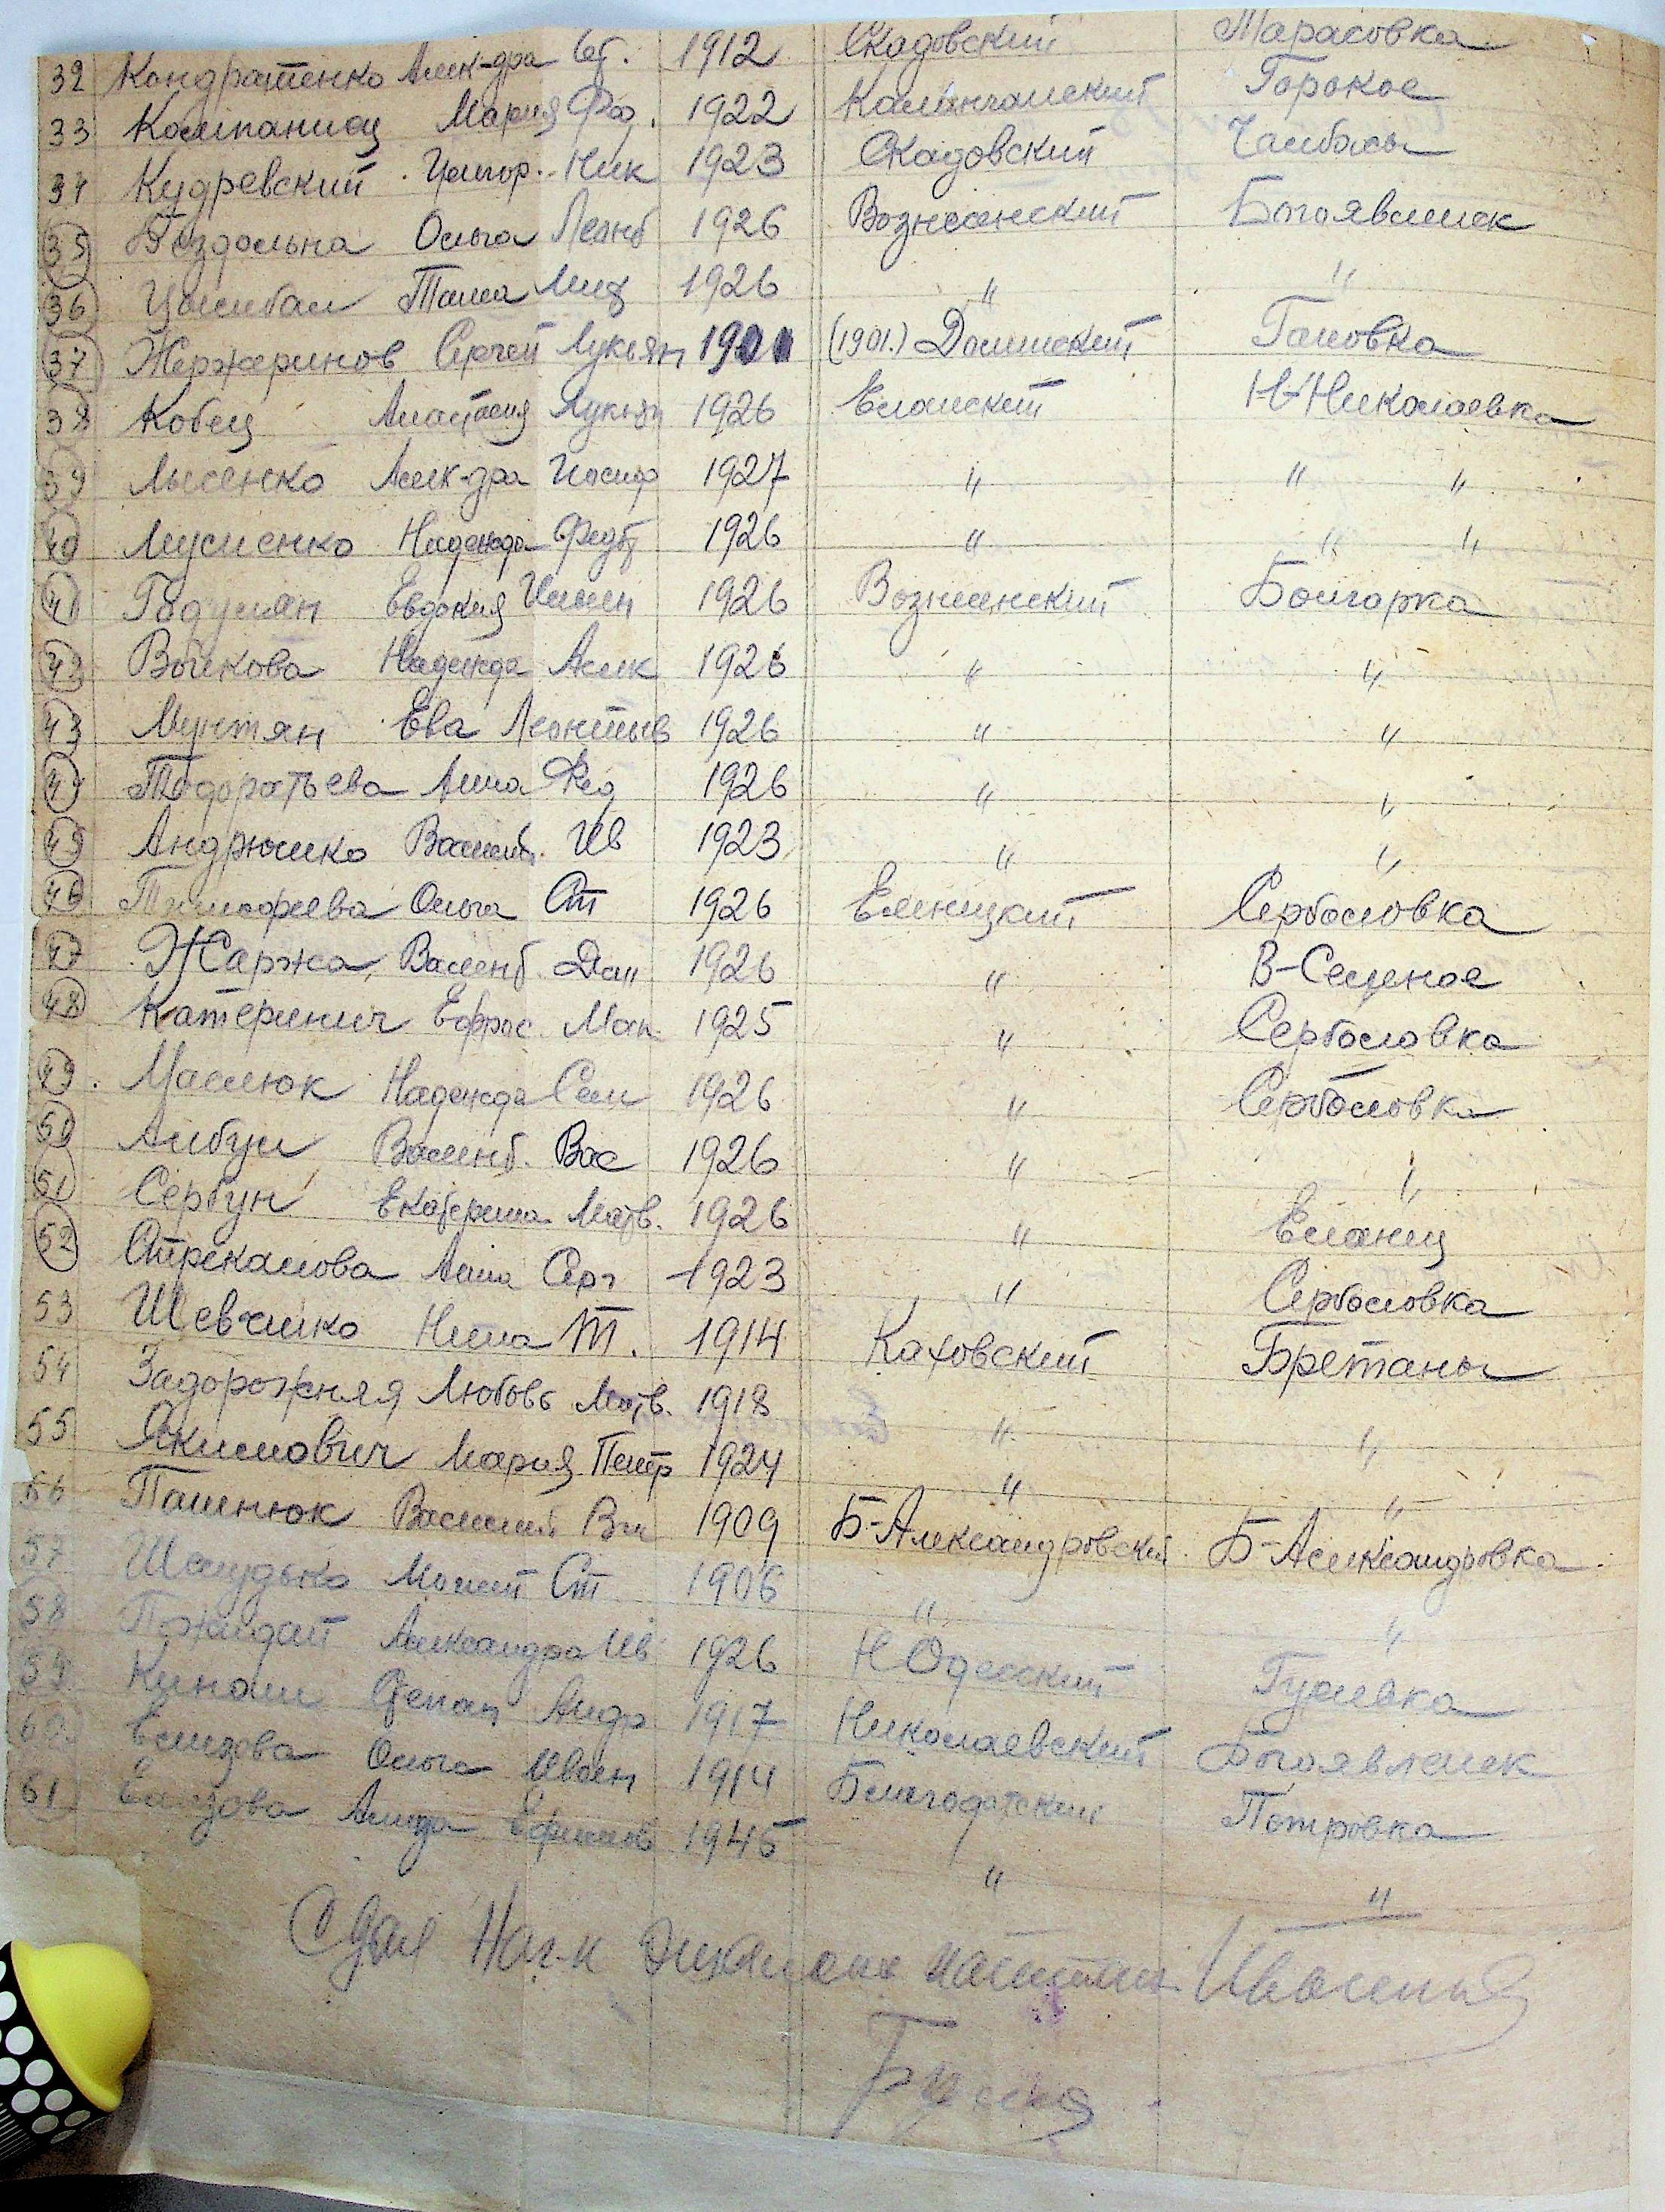 32 Кондратенко Алек-дра 1912 Скадовский Тарасовка
33 Компаниец Мария Фед. 1922 Каланчакский Горокое
34 Кудревский Григор. Ник 1923 Скадовский Чалбасы
35 Поздольна Ольга Леонт 1926 Вознесенский Богоявленск
36 Цымбал Таиса Мих 1926 " "
37 Жержеринов Сергей Лукьян 1901 (1901.) Долинский Гановка
38 Кобец Анастасия Лукьян 1926 Еланский Н-Николаевка
39 Лысенко Алек-дра Иосиф 1927 " " "
40 Мусиенко Надежда Федот 1926 " " "
41 Годулян Евдокия 1926 Вознесенский Болгарка
42 Волкова Надежда Алек 1926 " "
43 Мунтян Ева Леонтьев 1926 " "
44 Тодоратьева Анна Фед 1926 " "
45 Андрюшко Ив 1923 " "
46 Тимофеева Ольга Ст 1926 Еланецкий Сербуловка
47 Жаржа Валент. Дан 1926 " В-Солёное
48 Катеринич Ефрос. Мак 1925 " Сербуловка
49. Маслюк Надежда Сем 1926 " Сербуловка
50 Албул Валент. Вас 1926 " "
51 Сербун Екатерина Матв. 1926 " Еланец
52 Стрекалова Анна Серг 1923 " Сербуловка
53 Шевченко Нина Т. 1914 Каховский Бретаны
54 Задорожняя Любовь Матв. 1918 " "
55 Якимович Мария Петр 1924 " "
56 Паленюк Василий 1909 Б-Александровский Б-Александровка
57 Шалудько Моисей Ст 1906 " "
58 Пожидай Александра Ив 1926 Н Одесский Гурьевка
59 Киналь Степан Андр 1917 Николаевский Богоявленск
60. Елизова Ольга Иван 1914 Благодатский Петровка
61 Елизова Лида Ефимов 1945 " "
Сдал Нач-к эшелона капитан